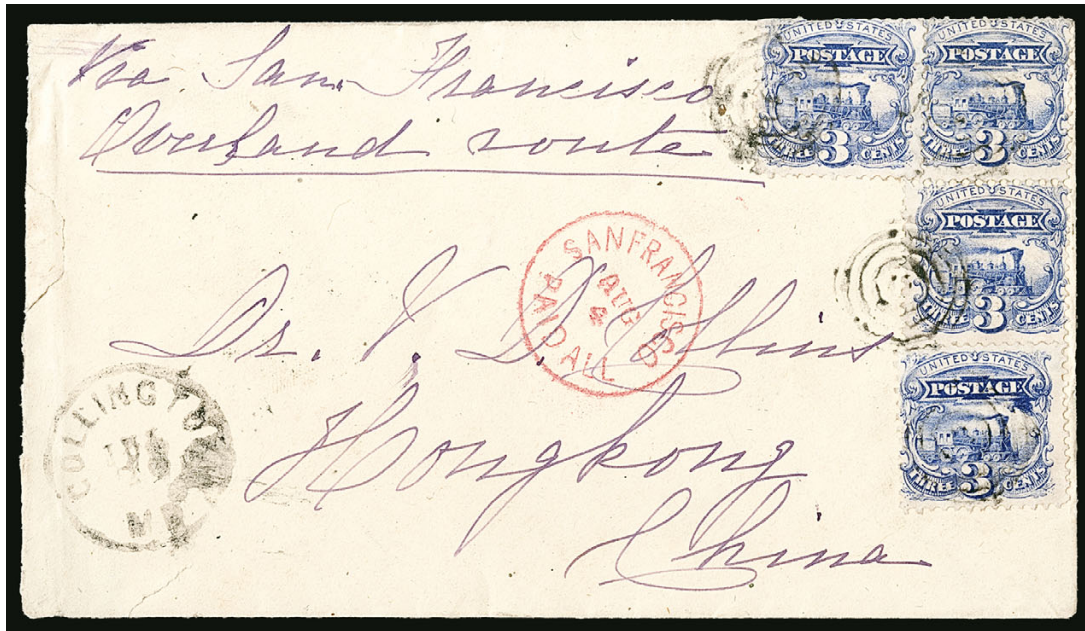 Via San Francisco
Overland route
UNITED STATES
POSTAGE
THREE 3 CENTS
UNITED STATES
POSTAGE
THREE 3 CENTS
UNITED STATES
POSTAGE
THREE 3 CENTS
UNITED STATES
POSTAGE
THREE 3 CENTS
SAN FRANCISCO
AUG
4
PAID ALL
Dr. V. D. Collins
Hongkong
China
COLLINGTON
MD